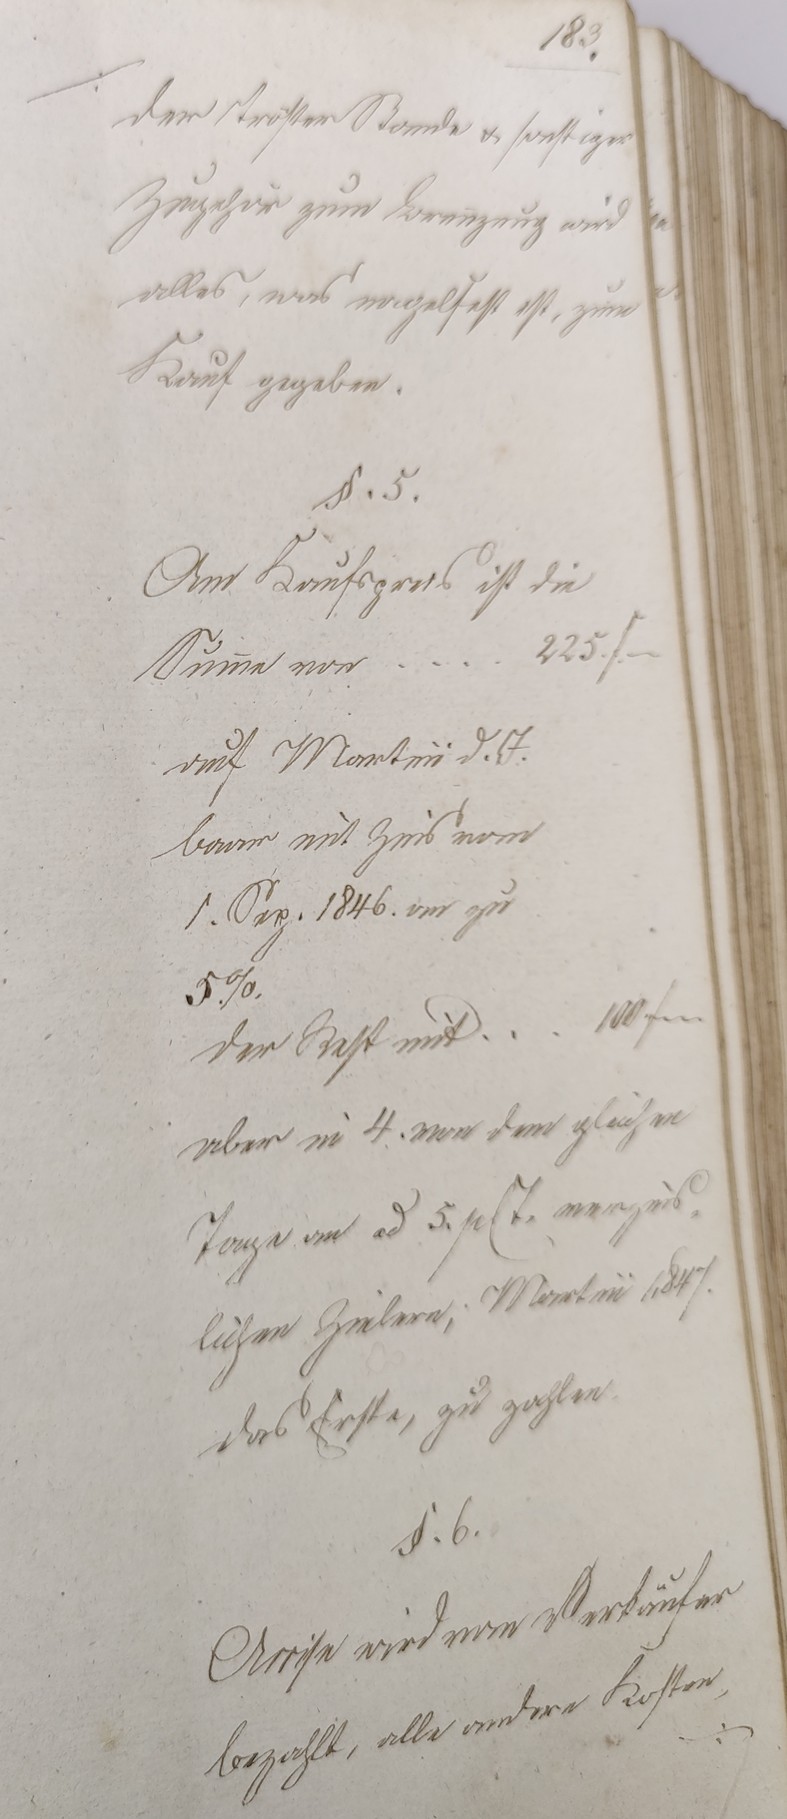 183.
der Tröster Bande & sonstiger
Zugehör zum Brennzeug wird
alles, was nagelfest ist, zum
Kauf gegeben.
§. 5.
Am Kaufspreis ist die
Summe von . . . . 225 f
auf Martini d. J.
baar mit Zins vom
1. Sep. 1846. an zu
5 %.
der Rest mit . . . 100 f
aber in 4. von dem gleichen
Tage an ad 5. p Ct. verzins-
lichen Zielern, Martini 1847.
das Erste, zu zahlen.
§. 6.
Accise wird vom Verkäufer
bezahlt, alle andere Kosten,